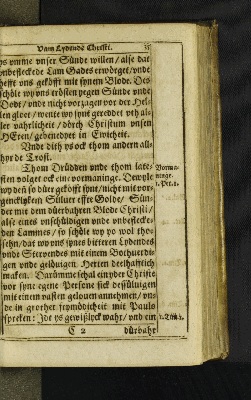 Vam Lydende Christi.
ys umme unser Sünde willen / alse dat
unbefleckede Lam Gades erwörget / unde
hefft uns gekofft mit synem Blode. Des
schöle wy uns erstlich yegen Sünde unde
Dodt / unde nicht vorzagen vor der Hel-
len gloet / wente wy synt gereddet uth al-
ler vahrlicheit / dörch Christum unsen
HEren / gebenedyet in Ewicheit.
Unde dith ys ock thom andern all-
hyr de Trost.
Thom Drüdden unde thom late-
sten volget ock eine vormaninge. Dewyle
wy den so düer gekofft synt / nicht mit vor-
gencklykem Sülver effte Golde / Sün-
der mit dem dürbahren Blode Christi /
alse eines unschüldigen unde unbeflecke-
den Lammes / so schöle wy yo wol tho-
sehn / dat wy uns synes bitteren Lydendes
unde Stervendes mit einem Bothverdi-
gen unde gelöuigen Herten deelhafftich
maken. Darümme schal ein yder Christe
vor syne egene Persone sick dessüluigen
mit einem vasten gelouen annehmen / un-
de in grother frymödicheit mit Paulo
spreken: Ide ys gewißlyck wahr / und ein
C 2 dürbahr
Vorma-
ninge.
1. Pet. 1.
1. Tim. 1.